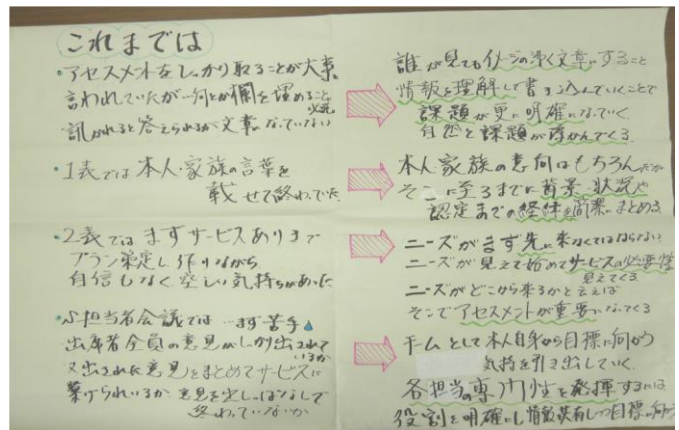 これまでは
・アセスメントをしっかり取ることが大事と
言われていたが…何とか欄を埋めることに必死
訊かれると答えられるが文章になっていない
・1表では本人・家族の言葉を
載せて終わっていた
・2表ではまずサービスありきで
プラン策定し作りながら
自信もなく空しい気持ちがあった
・S.担当者会議では…まず苦手
出席者全員の意見がしっかり出されて
いるか
又出された意見をまとめてサービスに
挙げられているか 意見を出しっぱなしで
終わっていないか
誰が見てもイメージの浮く文章にすること
情報を理解して書き込んでいくことで
課題が更に明確になっていく
自然と課題が浮かんでくる
本人家族の意向はもちろんだが
そこに至るまでに背景、状況や
認定までの経緯を簡潔にまとめる
ニーズがまず先に来なくてはならない
ニーズが見えて始めてサービスの必要性
見えてくる
ニーズがどこから来るかと言えば
そこでアセスメントが重要になってくる
チームとして本人自身から目標に向かう
気持を引き出していく
各担当の専門性を発揮するには
役割を明確にし情報共有しつつ目標に向かう